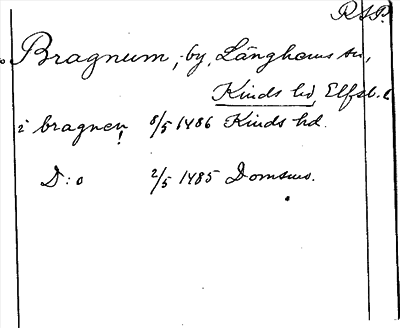 RAP.
Bragnum, by, Länghems sn,
Kinds hd, Elfsb. l
i bragnen! 8/5 1486 Kinds hd.
D:o 2/5 1485 Domsuo.